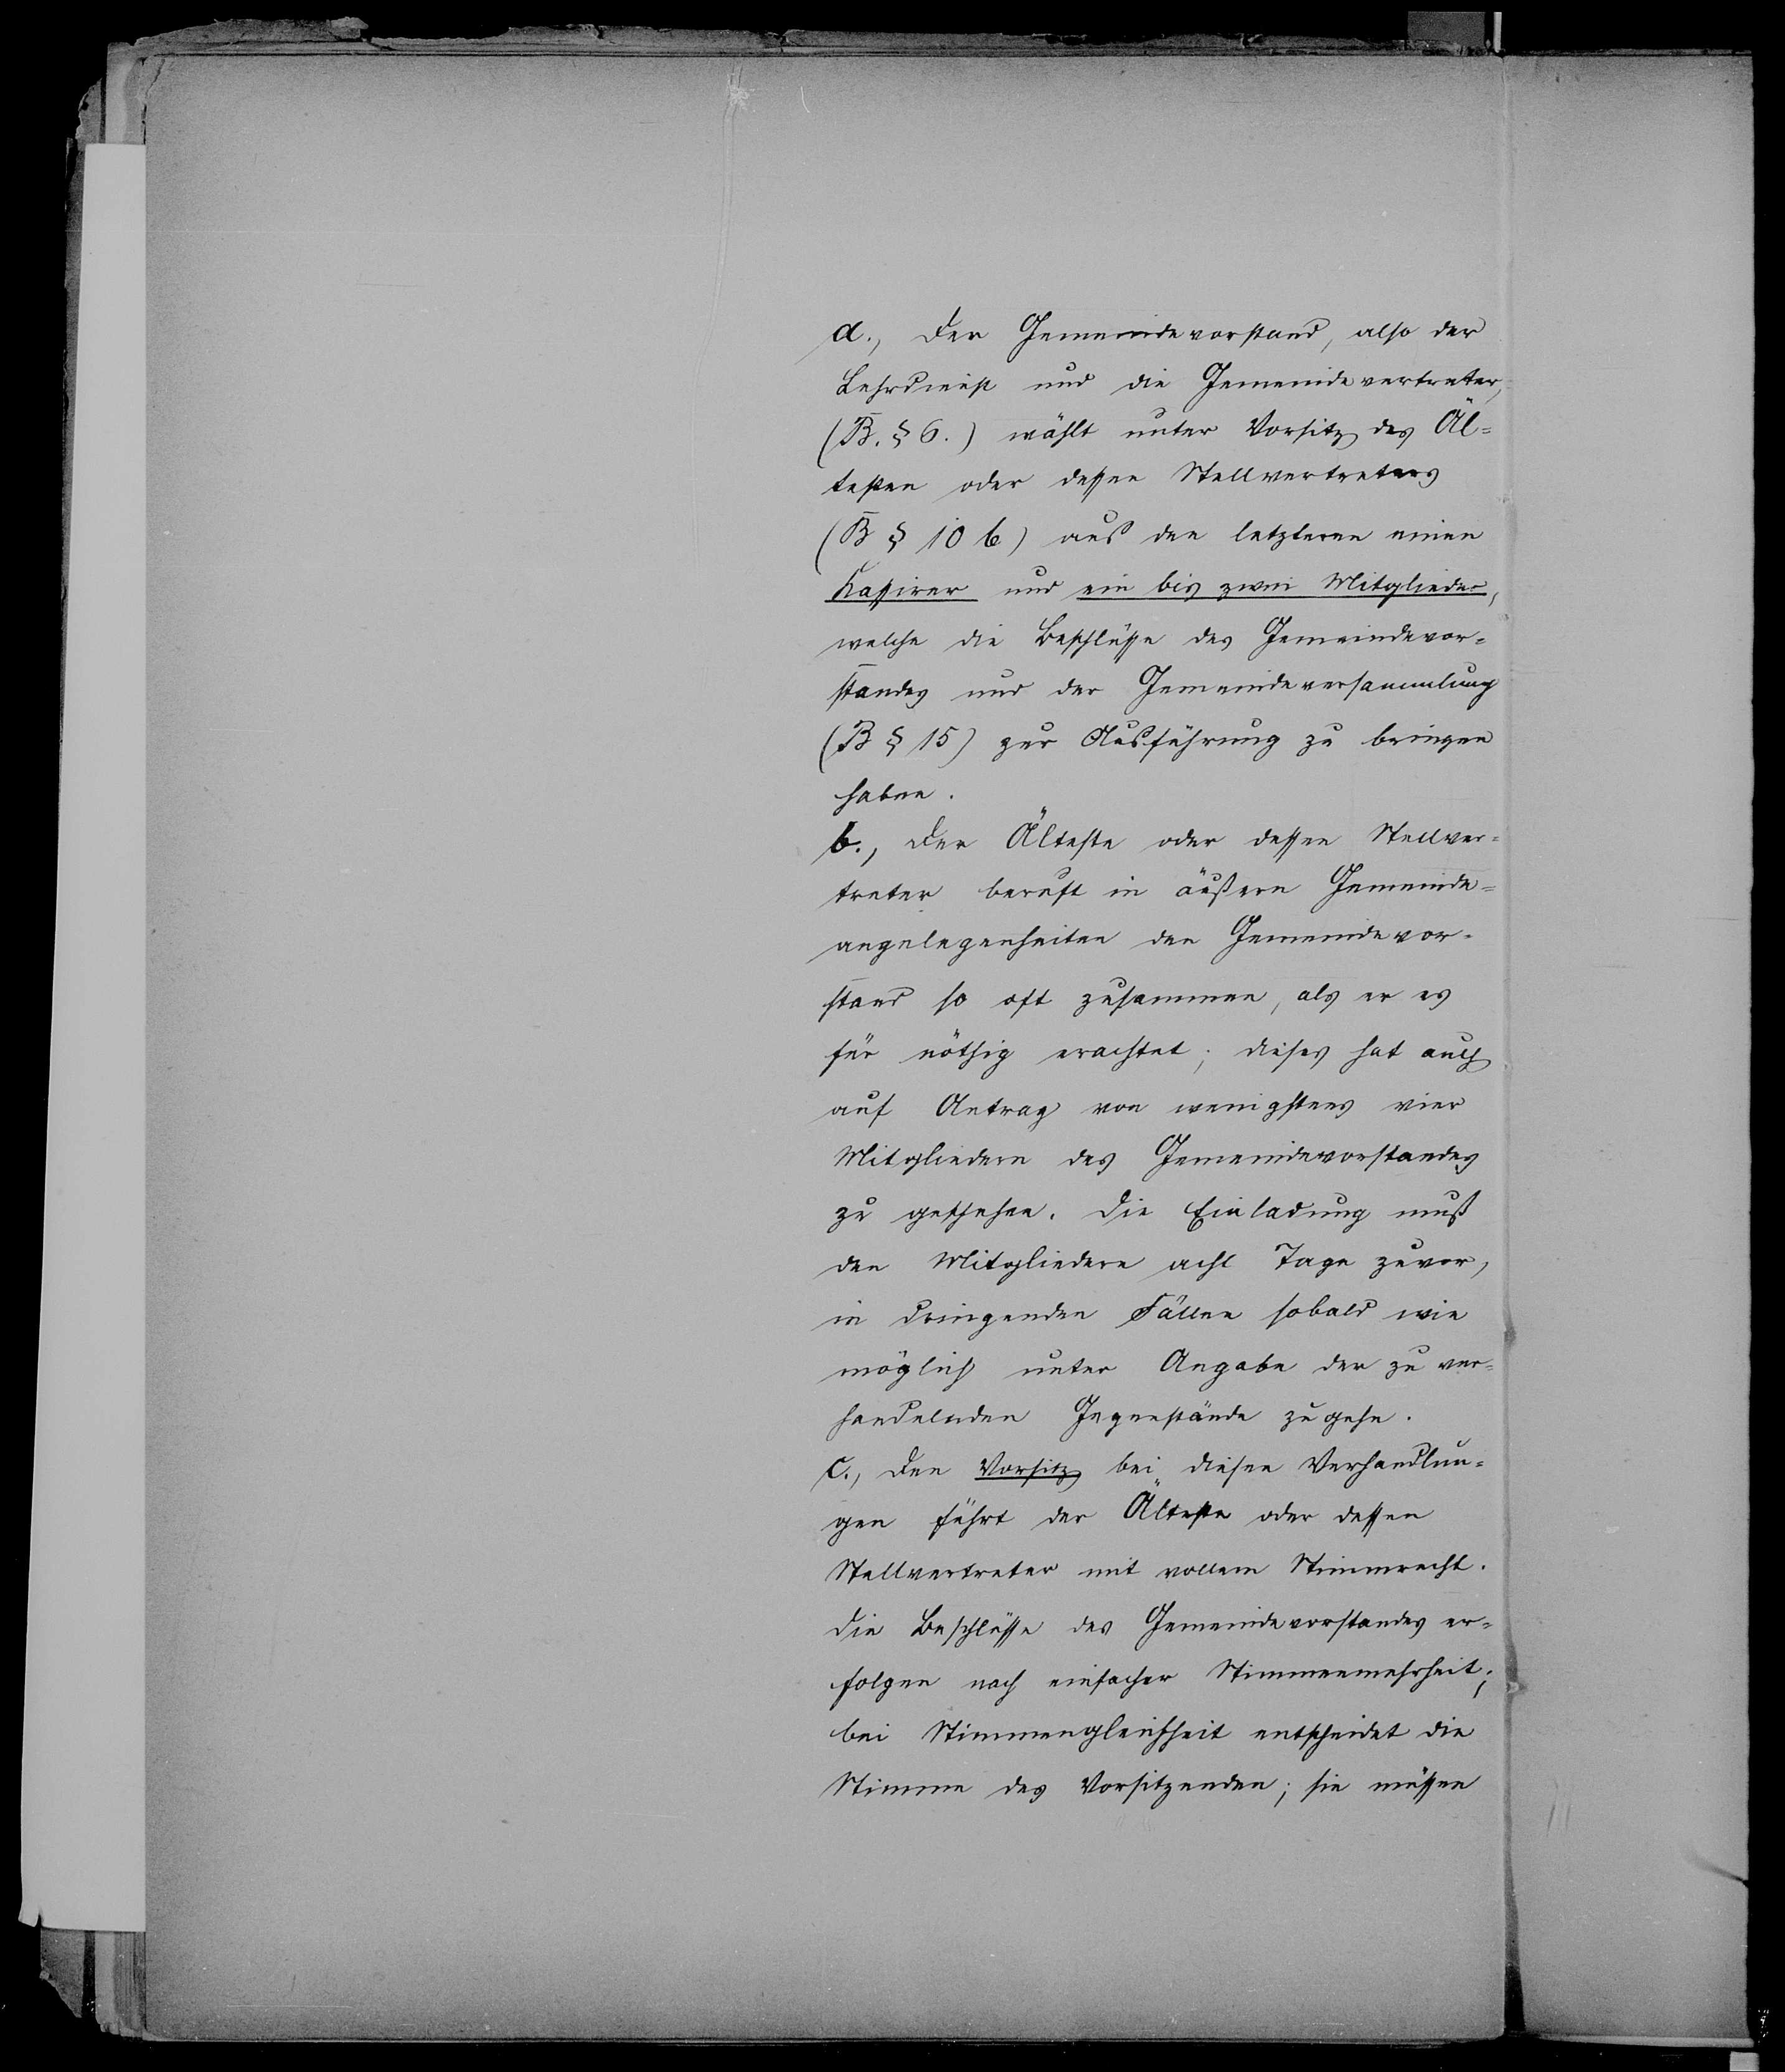 a., Der Gemeindevorstand, also der
Lehrdienst und die Gemeindevertreter,
(B. § 6.) wählt unter Vorsitz des Äl=
testen oder dessen Stellvertreters
(B § 10 b) aus den letzteren einen
Kassirer und ein bis zwei Mitglieder,
welche die Beschlüsse des Gemeindevor=
standes und der Gemeindeversammlung
(B § 15) zur Ausführung zu bringen
haben.
b., Der Älteste oder dessen Stellver=
treter beruft in äußern Gemeinde=
angelegenheiten den Gemeindevor=
stand so oft zusammen, als er es
für nöthig erachtet; dieses hat auch
auf Antrag von wenigstens vier
Mitgliedern des Gemeindevorstandes
zu geschehen. Die Einladung muß
den Mitgliedern acht Tage zuvor,
in dringenden Fällen sobald wie
möglich unter Angabe der zu ver=
handelnden Gegenstände zugehn.
c., Den Vorsitz bei diesen Verhandlun=
gen führt der Älteste oder dessen
Stellvertreter mit vollem Stimmrecht.
Die Beschlüsse des Gemeindevorstandes er=
folgen nach einfacher Stimmenmehrheit;
bei Stimmengleichheit entscheidet die
Stimme des Vorsitzenden; sie müssen